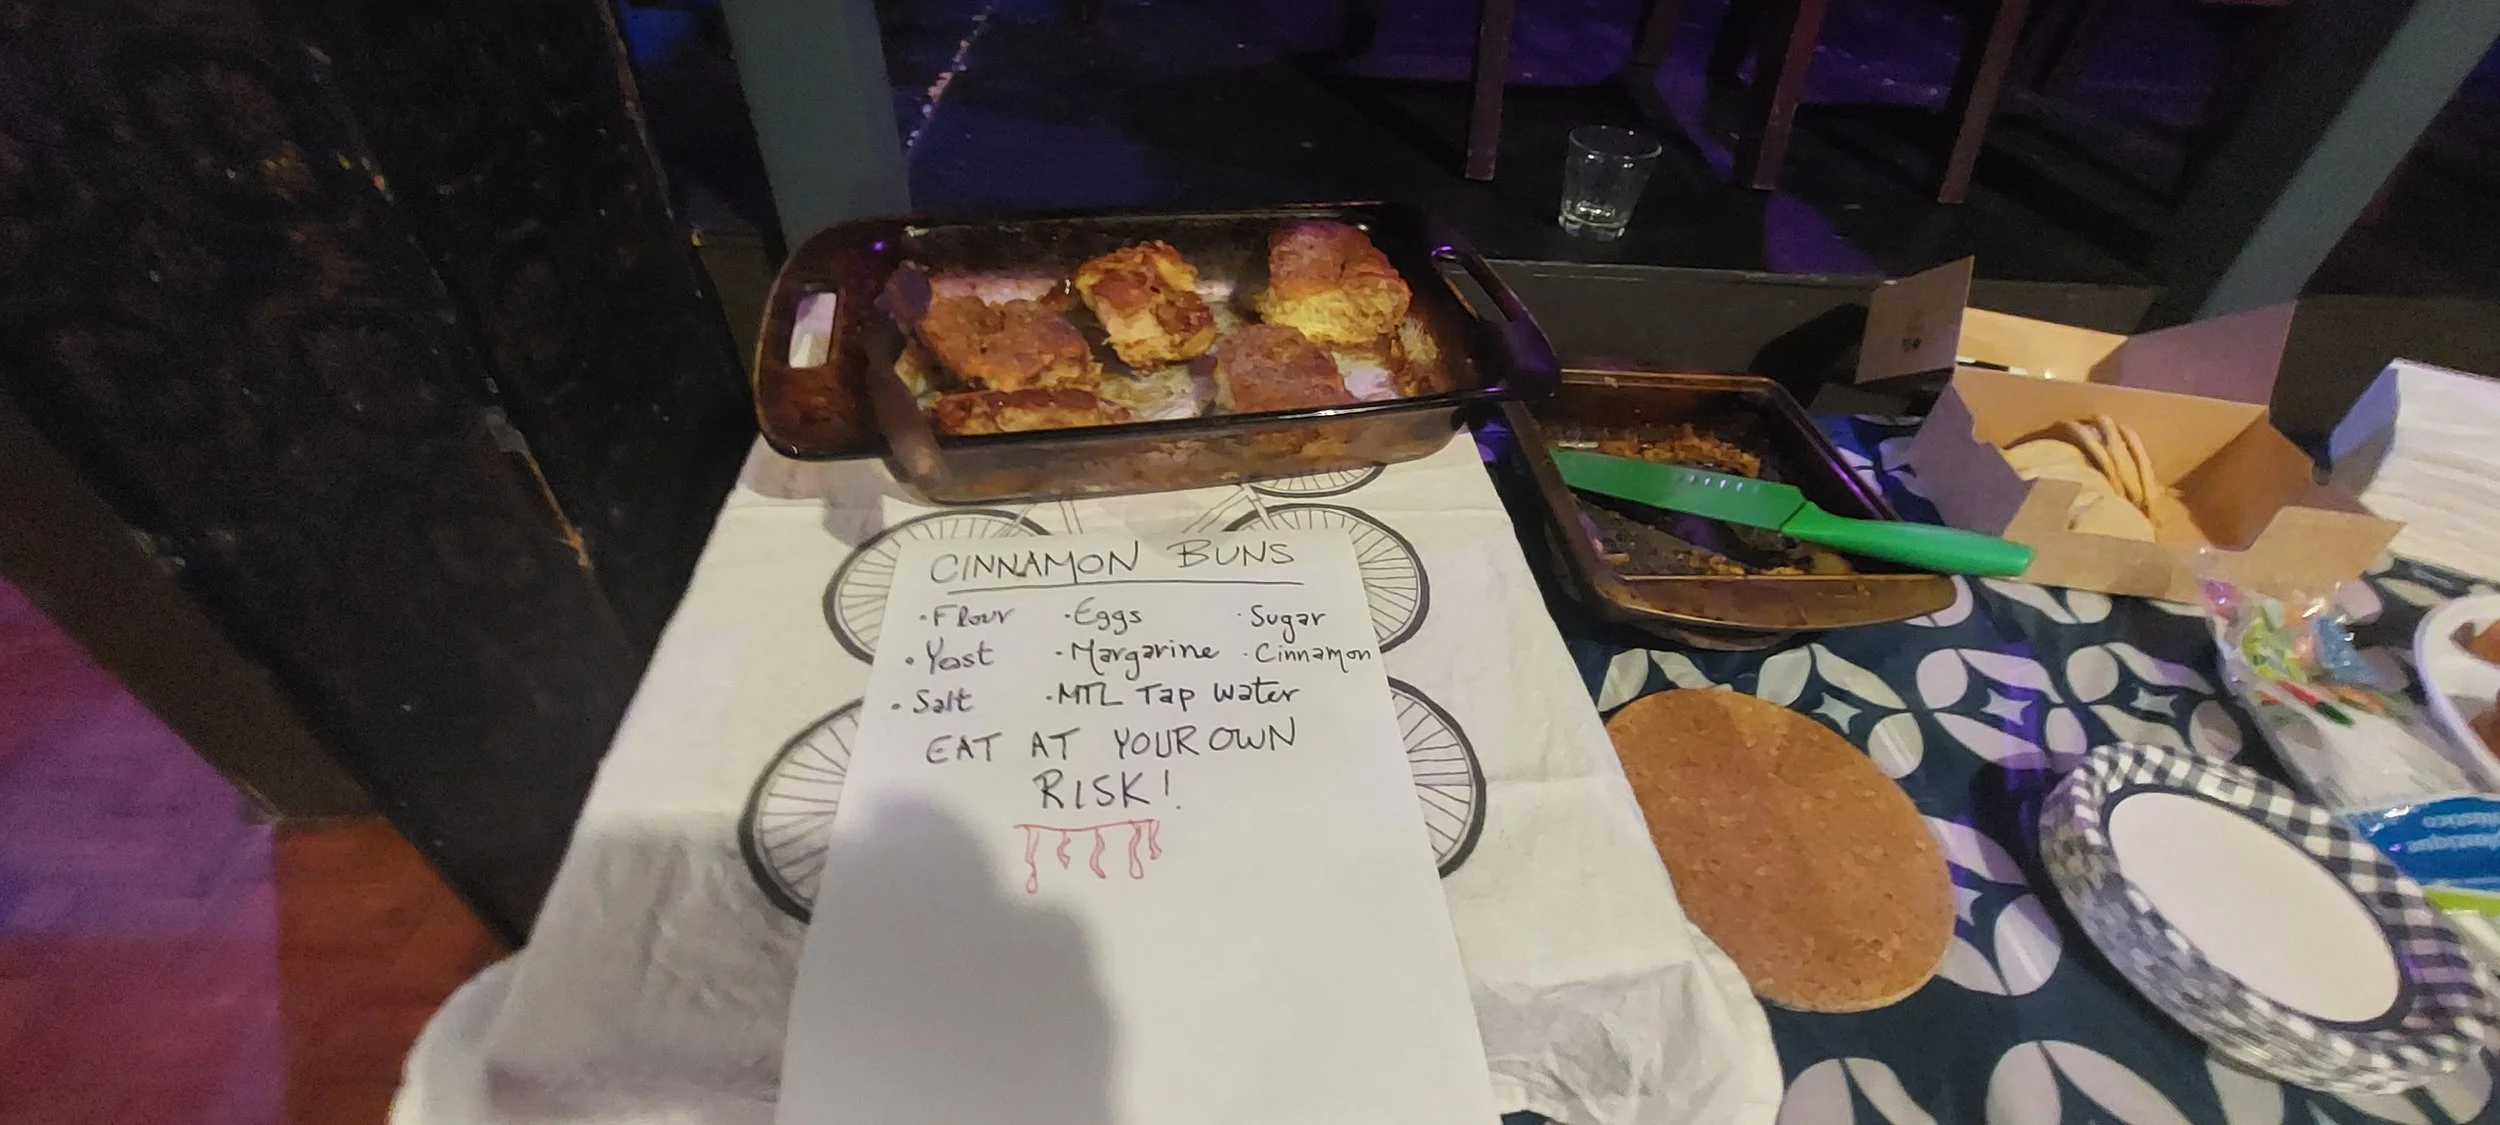 CINNAMON BUNS
• Flour • Eggs • Sugar
• Yeast • Margarine • Cinnamon
• Salt • MTL Tap Water
EAT AT YOUR OWN
RISK!